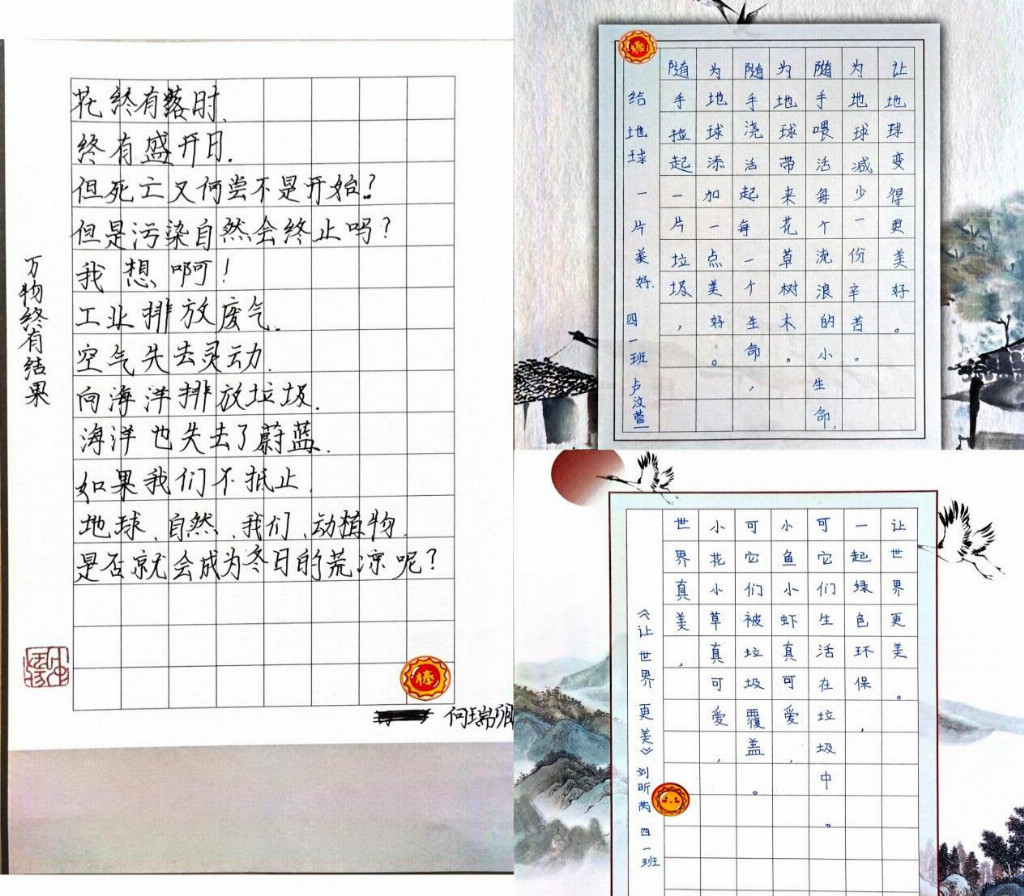 万物终有结果
花终有落时.
终有盛开日.
但死亡又何尝不是开始?
但是污染自然会终止吗?
我想啊!
工业排放废气.
空气失去灵动.
向海洋排放垃圾.
海洋也失去了蔚蓝.
如果我们不抵止.
地球、自然、我们、动植物.
是否就会成为冬日的荒凉呢?
棒
棒
给地球一片美好. 四一班 卢汶萱
随手捡起一片垃圾，
为地球添加一点美好。
随手浇活起每一个生命，
为地球带来花草树木。
随手喂活每个流浪的小生命，
为地球减少一份辛苦。
让地球变得更美好。
《让世界更美》 刘昕 四一班
世界真美，
小花小草真可爱，
可它们被垃圾覆盖。
小鱼小虾真可爱，
可它们生活在垃圾中。
一起绿色环保，
让世界更美。